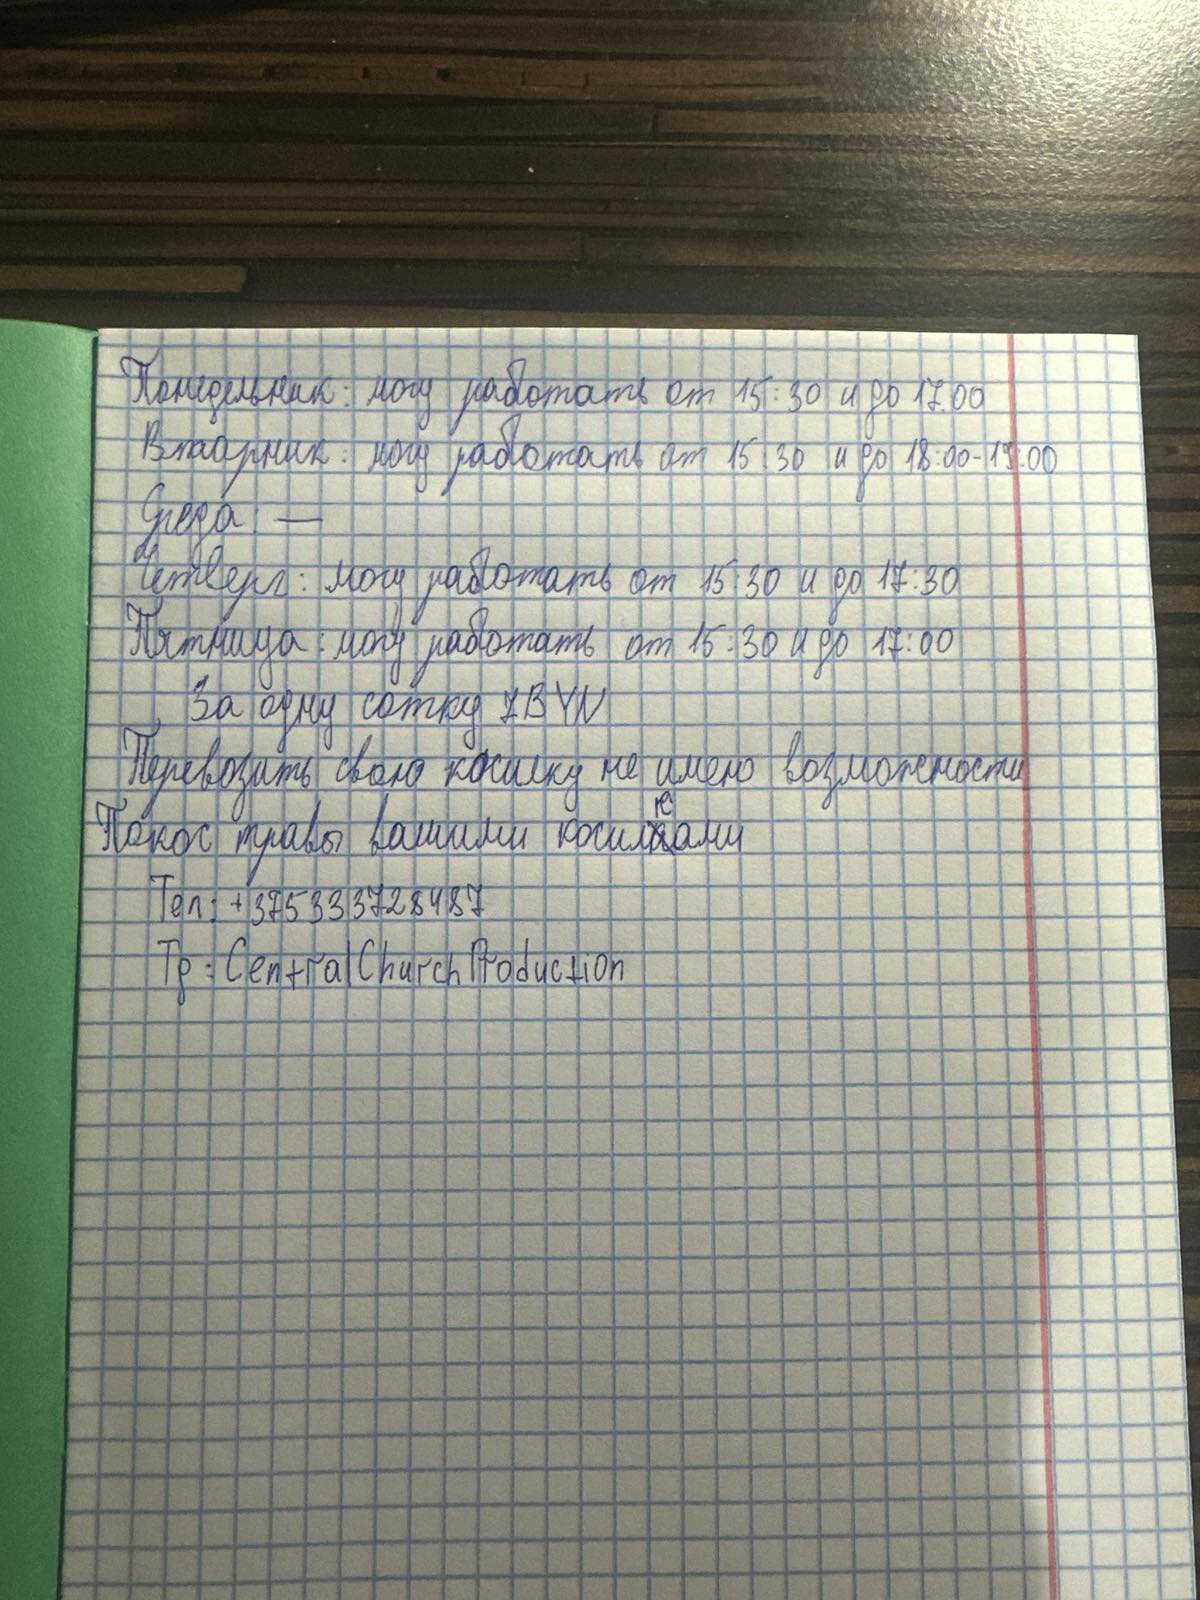 Понедельник: могу работать от 15:30 и до 17.00
Вторник: могу работать от 15:30 и до 18:00-19:00
Среда: —
Четверг: могу работать от 15:30 и до 17:30
Пятница: могу работать от 15:30 и до 17:00
За одну сотку 7BYN
Перевозить свою косилку не имею возможности
Покос травы вашими косилками
Тел: +375333728487
Tg: CentralChurchProduction